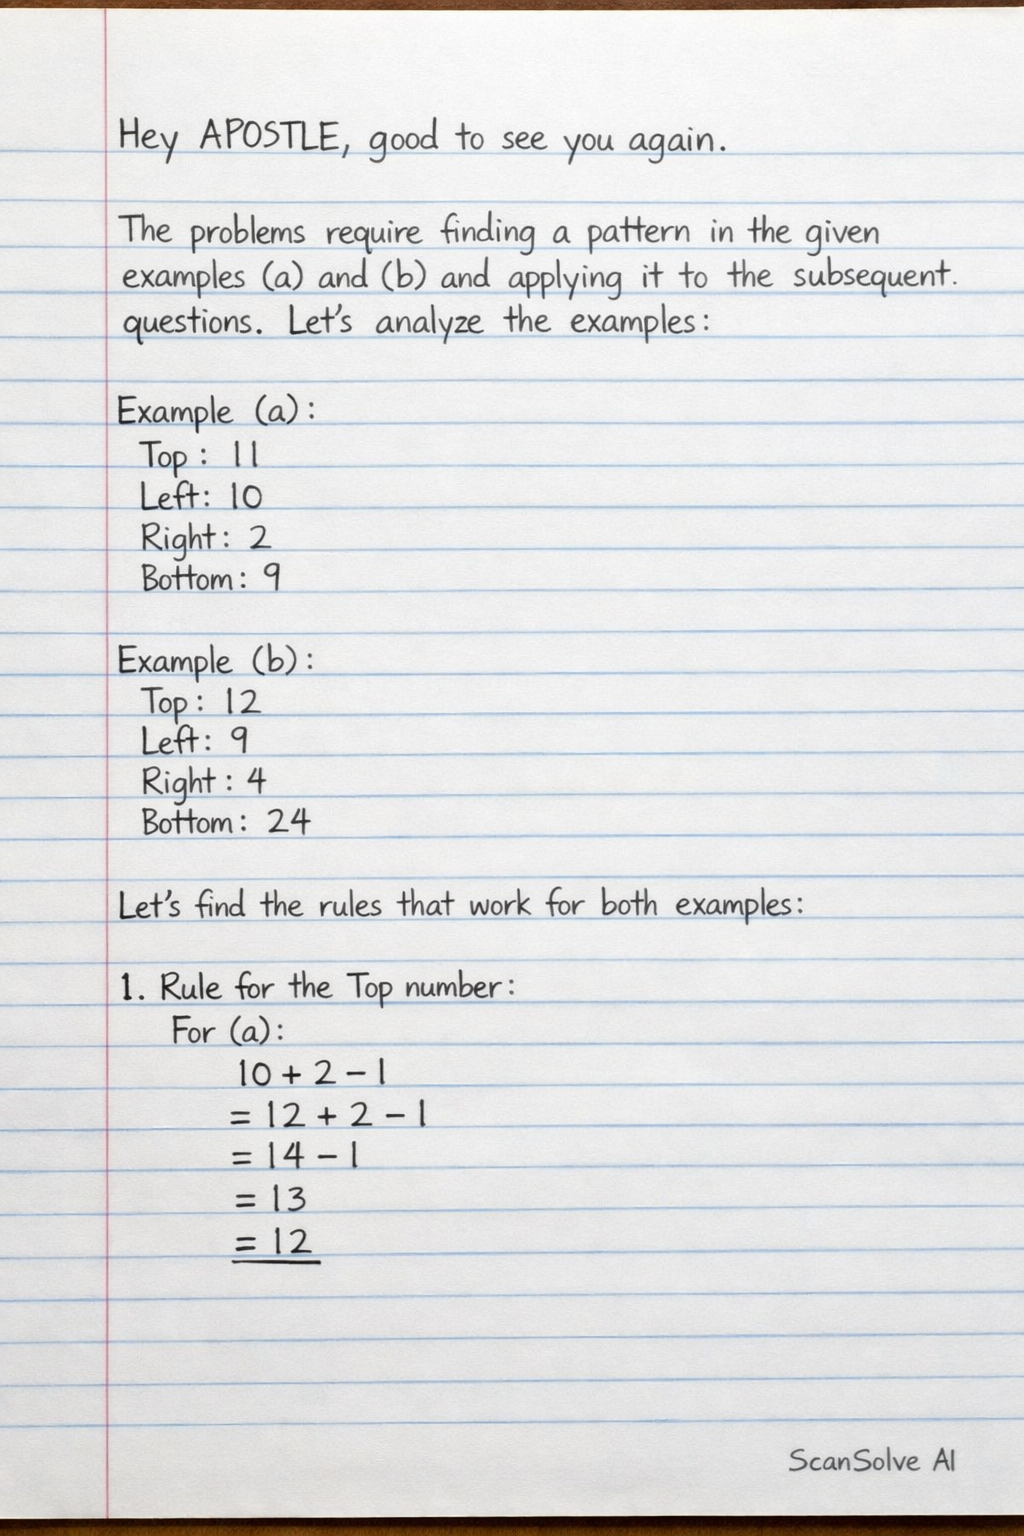 Hey APOSTLE, good to see you again.
The problems require finding a pattern in the given
examples (a) and (b) and applying it to the subsequent.
questions. Let's analyze the examples:
Example (a):
Top: 11
Left: 10
Right: 2
Bottom: 9
Example (b):
Top: 12
Left: 9
Right: 4
Bottom: 24
Let's find the rules that work for both examples:
1. Rule for the Top number:
For (a):
10 + 2 - 1
= 12 + 2 - 1
= 14 - 1
= 13
= 12
ScanSolve AI